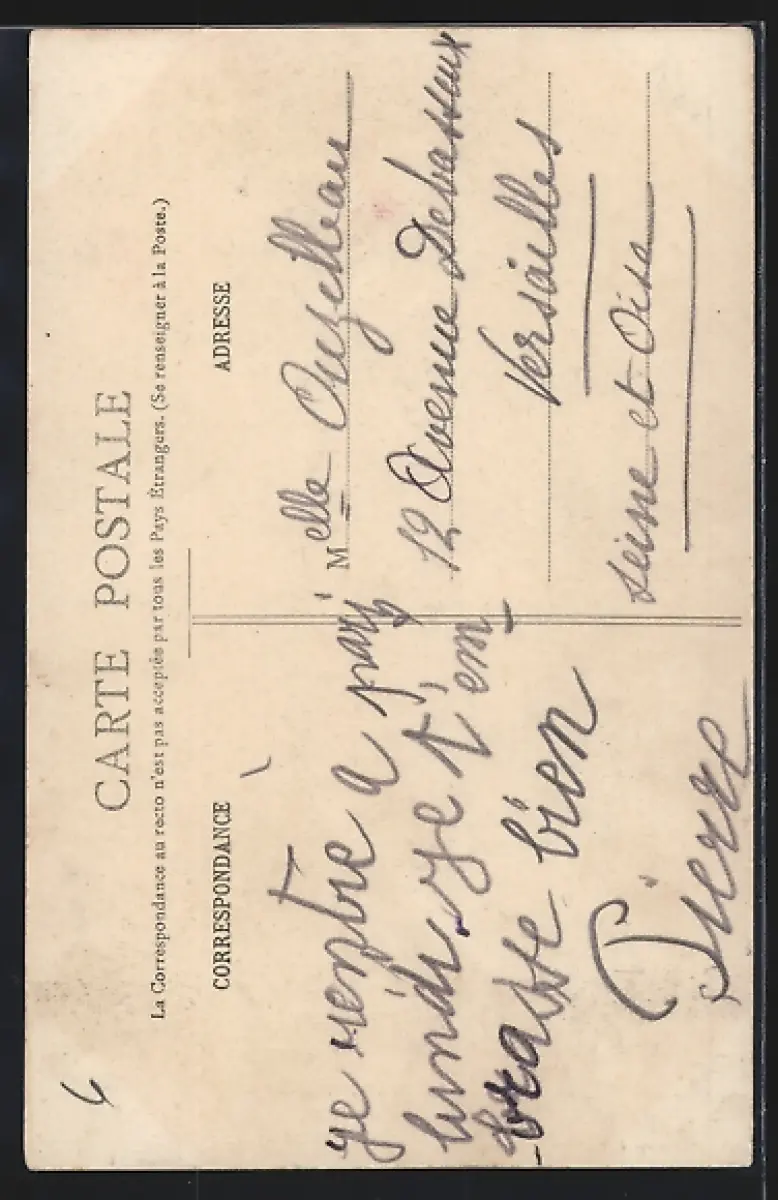 CARTE POSTALE
La Correspondance au recto n'est pas acceptée par tous les Pays Étrangers. (Se renseigner à la Poste.)
CORRESPONDANCE
je rentre à paris
lundi. je t'em
brasse bien
Pierre
ADRESSE
Melle Ouzelleau
12 Avenue Debasseux
Versailles
Seine et Oise